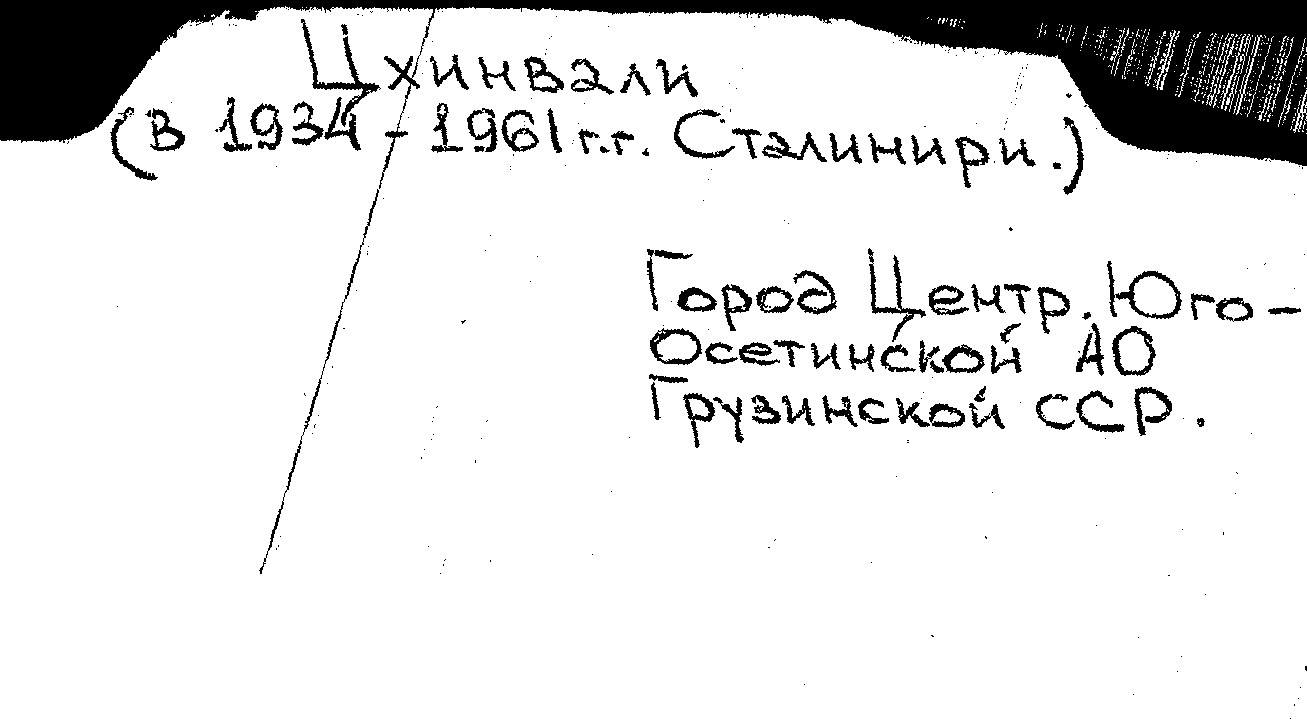 Цхинвали
(В 1934 - 1961 г.г. Сталинири.)
Город Центр. Юго-
Осетинской АО
Грузинской ССР.